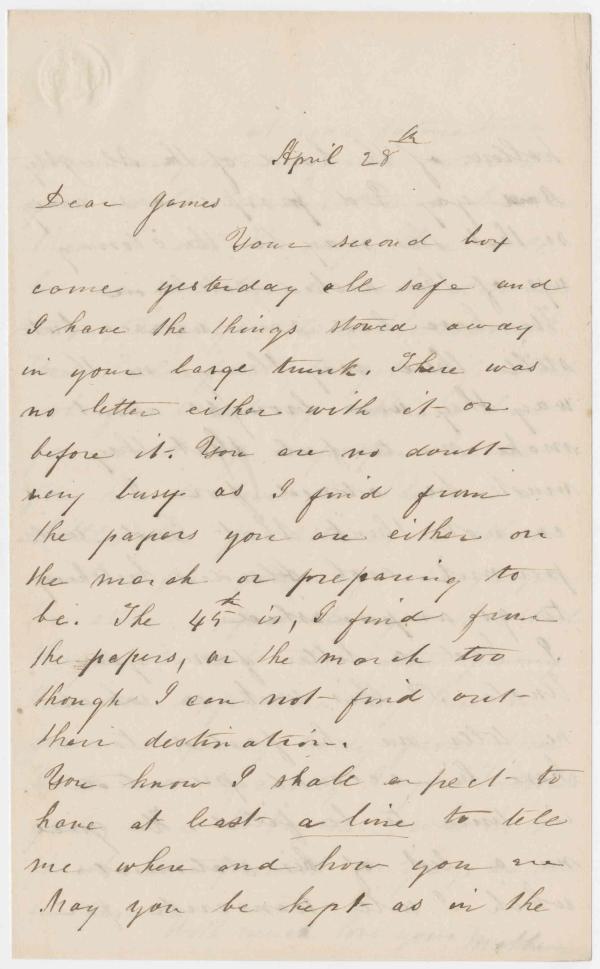 April 28th
Dear James
Your second box
come yesterday all safe and
I have the things stowed away
in your large trunk. There was
no letter either with it or
before it. You are no doubt
very busy as I find from
the papers you are either on
the march or preparing to
be. The 45th is, I find from
the papers, on the march too
though I can not find out
their destination.
You know I shall expect to
have at least a line to tell
me where and how you are
May you be kept as in the